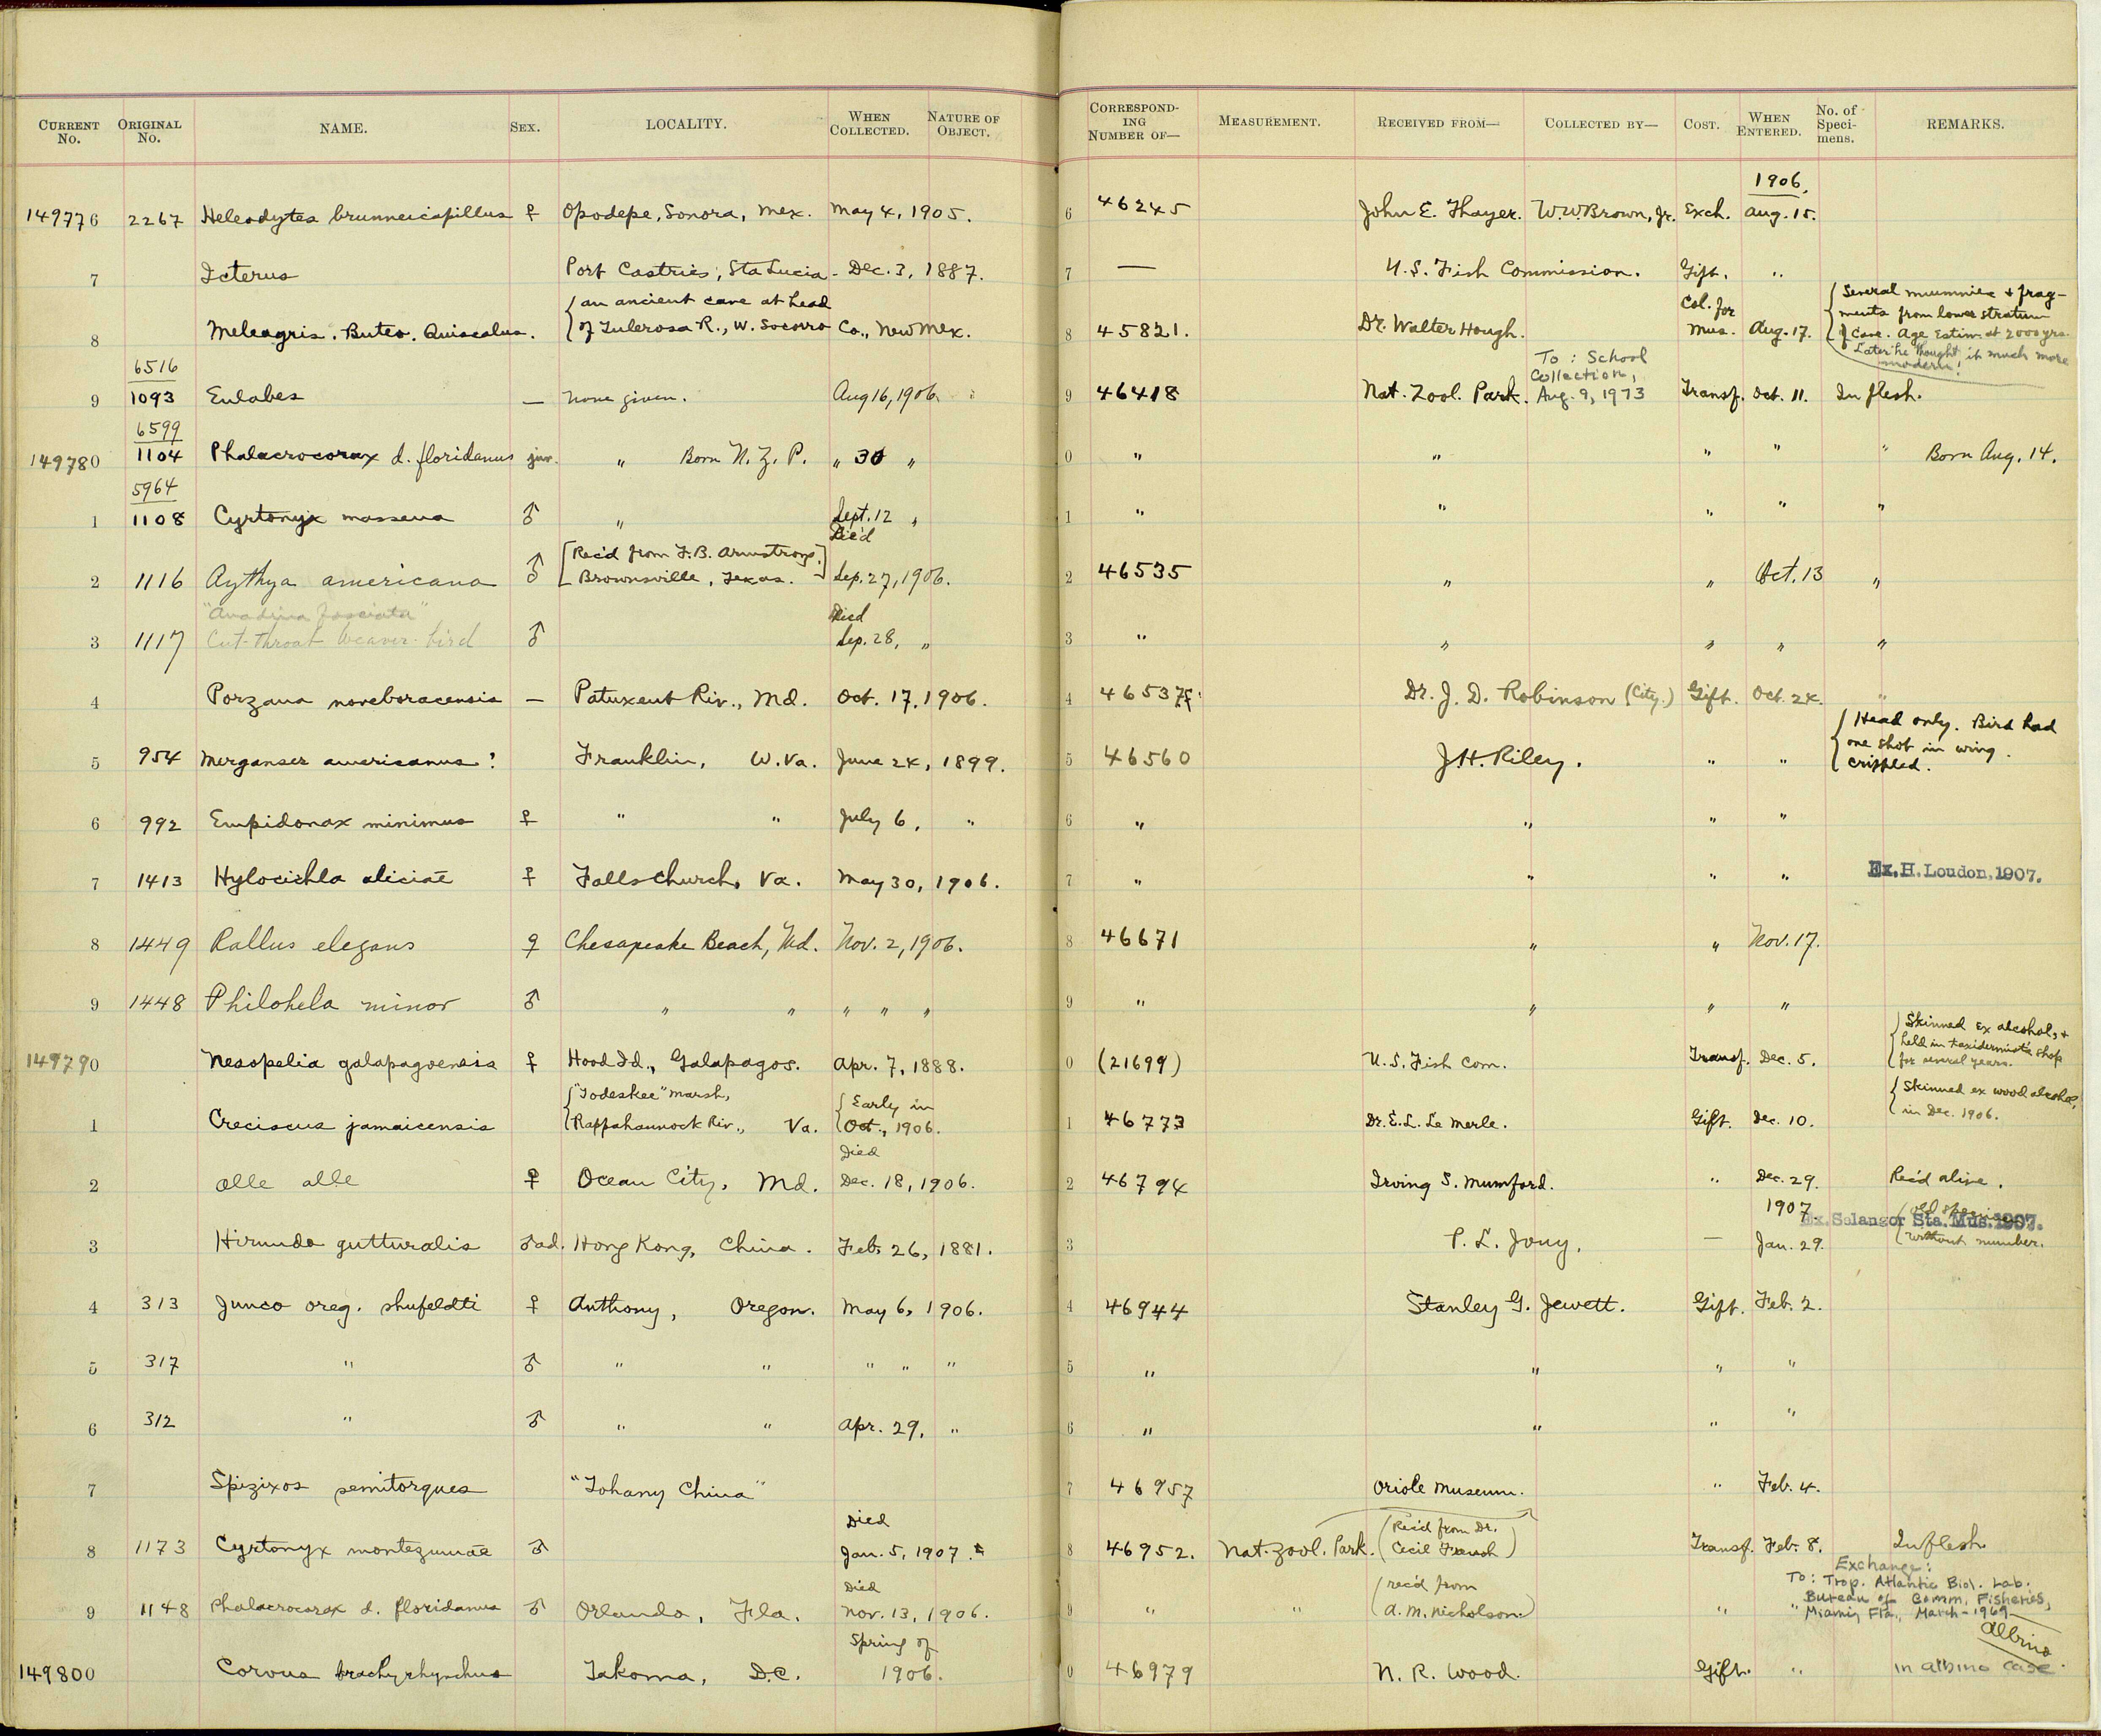 CURRENT No. ORIGINAL No. NAME. SEX. LOCALITY. WHEN COLLECTED. NATURE OF OBJECT. CORRESPONDING NUMBER OF— MEASUREMENT. RECEIVED FROM— COLLECTED BY— COST. WHEN ENTERED. No. of Specimens. REMARKS.
1906.
149776 2267 Heleodytes brunneicapillus ♀ Opodepe, Sonora, Mex. May 4, 1905. 6 46245 John E. Thayer. W.W. Brown, Jr. Exch. Aug. 15.
7 Icterus Port Castries, Sta Lucia - Dec. 3, 1887. 7 — U.S. Fish Commission. Gift. "
8 Meleagris. Buteo. Quiscalus. { an ancient cave at head of Tulerosa R., W. Socorro Co., New Mex. 8 45821. Dr. Walter Hough. Col. for Mus. Aug. 17. { Several mummies + fragments from lower stratum of Cave. Age Estim. at 2000 yrs. Later he thought it much more modern!
6516
9 1093 Eulabes — None given. Aug 16, 1906. 9 46418 Nat. Zool. Park. To: School Collection, Aug. 9, 1973 Transf. Oct. 11. In flesh.
6599
149780 1104 Phalacrocorax d. floridanus juv. " Born N. Z. P. " 30 " 0 " " " " " Born Aug. 14.
5964
1 1108 Cyrtonyx massena ♂ " Sept. 12 " 1 " " " " "
2 1116 Aythya americana ♂ [Rec'd from F.B. Armstrong. Brownsville, Texas.] Died Sep. 27, 1906. 2 46535 " " Oct. 13 "
"Amadina fasciata"
3 1117 Cut-throat Weaver-bird ♂ Died Sep. 28, " 3 " " " " "
4 Porzana noveboracensis — Patuxent Riv., Md. Oct. 17, 1906. 4 46537 Dr. J. D. Robinson (City.) Gift. Oct. 24. "
5 954 Merganser americanus? Franklin, W. Va. June 24, 1899. 5 46560 J.H. Riley. " " { Head only. Bird had one shot in wing. crippled.
6 992 Empidonax minimus ♀ " " July 6, " 6 " " " "
7 1413 Hylocichla aliciae ♀ Falls Church, Va. May 30, 1906. 7 " " " " Ex. H. Loudon, 1907.
8 1449 Rallus elegans ♀ Chesapeake Beach, Md. Nov. 2, 1906. 8 46671 " " Nov. 17.
9 1448 Philohela minor ♂ " " " " " 9 " " " "
149790 Nesopelia galapagoensis ♀ Hood Id., Galapagos. Apr. 7, 1888. 0 (21699) U.S. Fish Com. Transf. Dec. 5. { Skinned ex alcohol, + held in taxidermist's shop for several years.
1 Creciscus jamaicensis { "Todeskee" Marsh, Rappahannock Riv., Va. { Early in Oct., 1906. 1 46773 Dr. E.L. Le Merle. Gift. Dec. 10. { Skinned ex wood alcohol, in Dec. 1906.
2 Alle alle ♀ Ocean City, Md. Died Dec. 18, 1906. 2 46794 Irving S. Mumford. " Dec. 29. Rec'd alive.
1907
3 Hirundo gutturalis ♂ ad. Hong Kong, China. Feb. 26, 1881. 3 P. L. Jouy. — Jan. 29. Ex. Selangor Sta. Mus. 1907. (old specimen without number.
4 313 Junco oreg. shufeldti ♀ Anthony, Oregon. May 6, 1906. 4 46944 Stanley G. Jewett. Gift. Feb. 2.
5 317 " ♂ " " " " " 5 " " " "
6 312 " ♂ " " Apr. 29, " 6 " " " "
7 Spizixos semitorques "Tohany China" 7 46957 Oriole Museum. " Feb. 4.
8 1173 Cyrtonyx montezumae ♂ Died Jan. 5, 1907. 8 46952. Nat. Zool. Park. (Rec'd from Dr. Cecil French) Transf. Feb. 8. In flesh.
9 1148 Phalacrocorax d. floridanus ♂ Orlando, Fla. Died Nov. 13, 1906. 9 " " (rec'd from A.M. Nicholson.) " " Exchange: To: Trop. Atlantic Biol. Lab. Bureau of Comm. Fisheries, Miami, Fla., March-1969
149800 Corvus brachyrhynchus Takoma, D.C. Spring of 1906. 0 46979 N. R. Wood. Gift. " Albino in albino case.